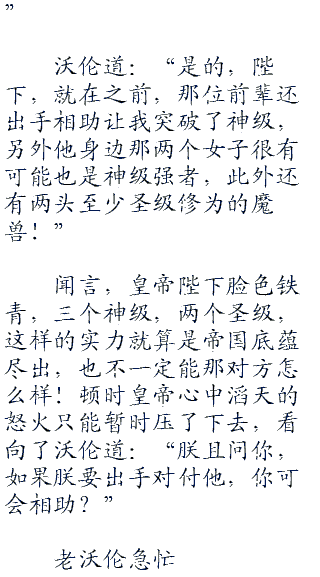 ”
沃伦道：“是的，陛
下，就在之前，那位前辈还
出手相助让我突破了神级，
另外他身边那两个女子很有
可能也是神级强者，此外还
有两头至少圣级修为的魔
兽！”
闻言，皇帝陛下脸色铁
青，三个神级，两个圣级，
这样的实力就算是帝国底蕴
尽出，也不一定能那对方怎
么样！顿时皇帝心中滔天的
怒火只能暂时压了下去，看
向了沃伦道：“朕且问你，
如果朕要出手对付他，你可
会相助？”
老沃伦急忙